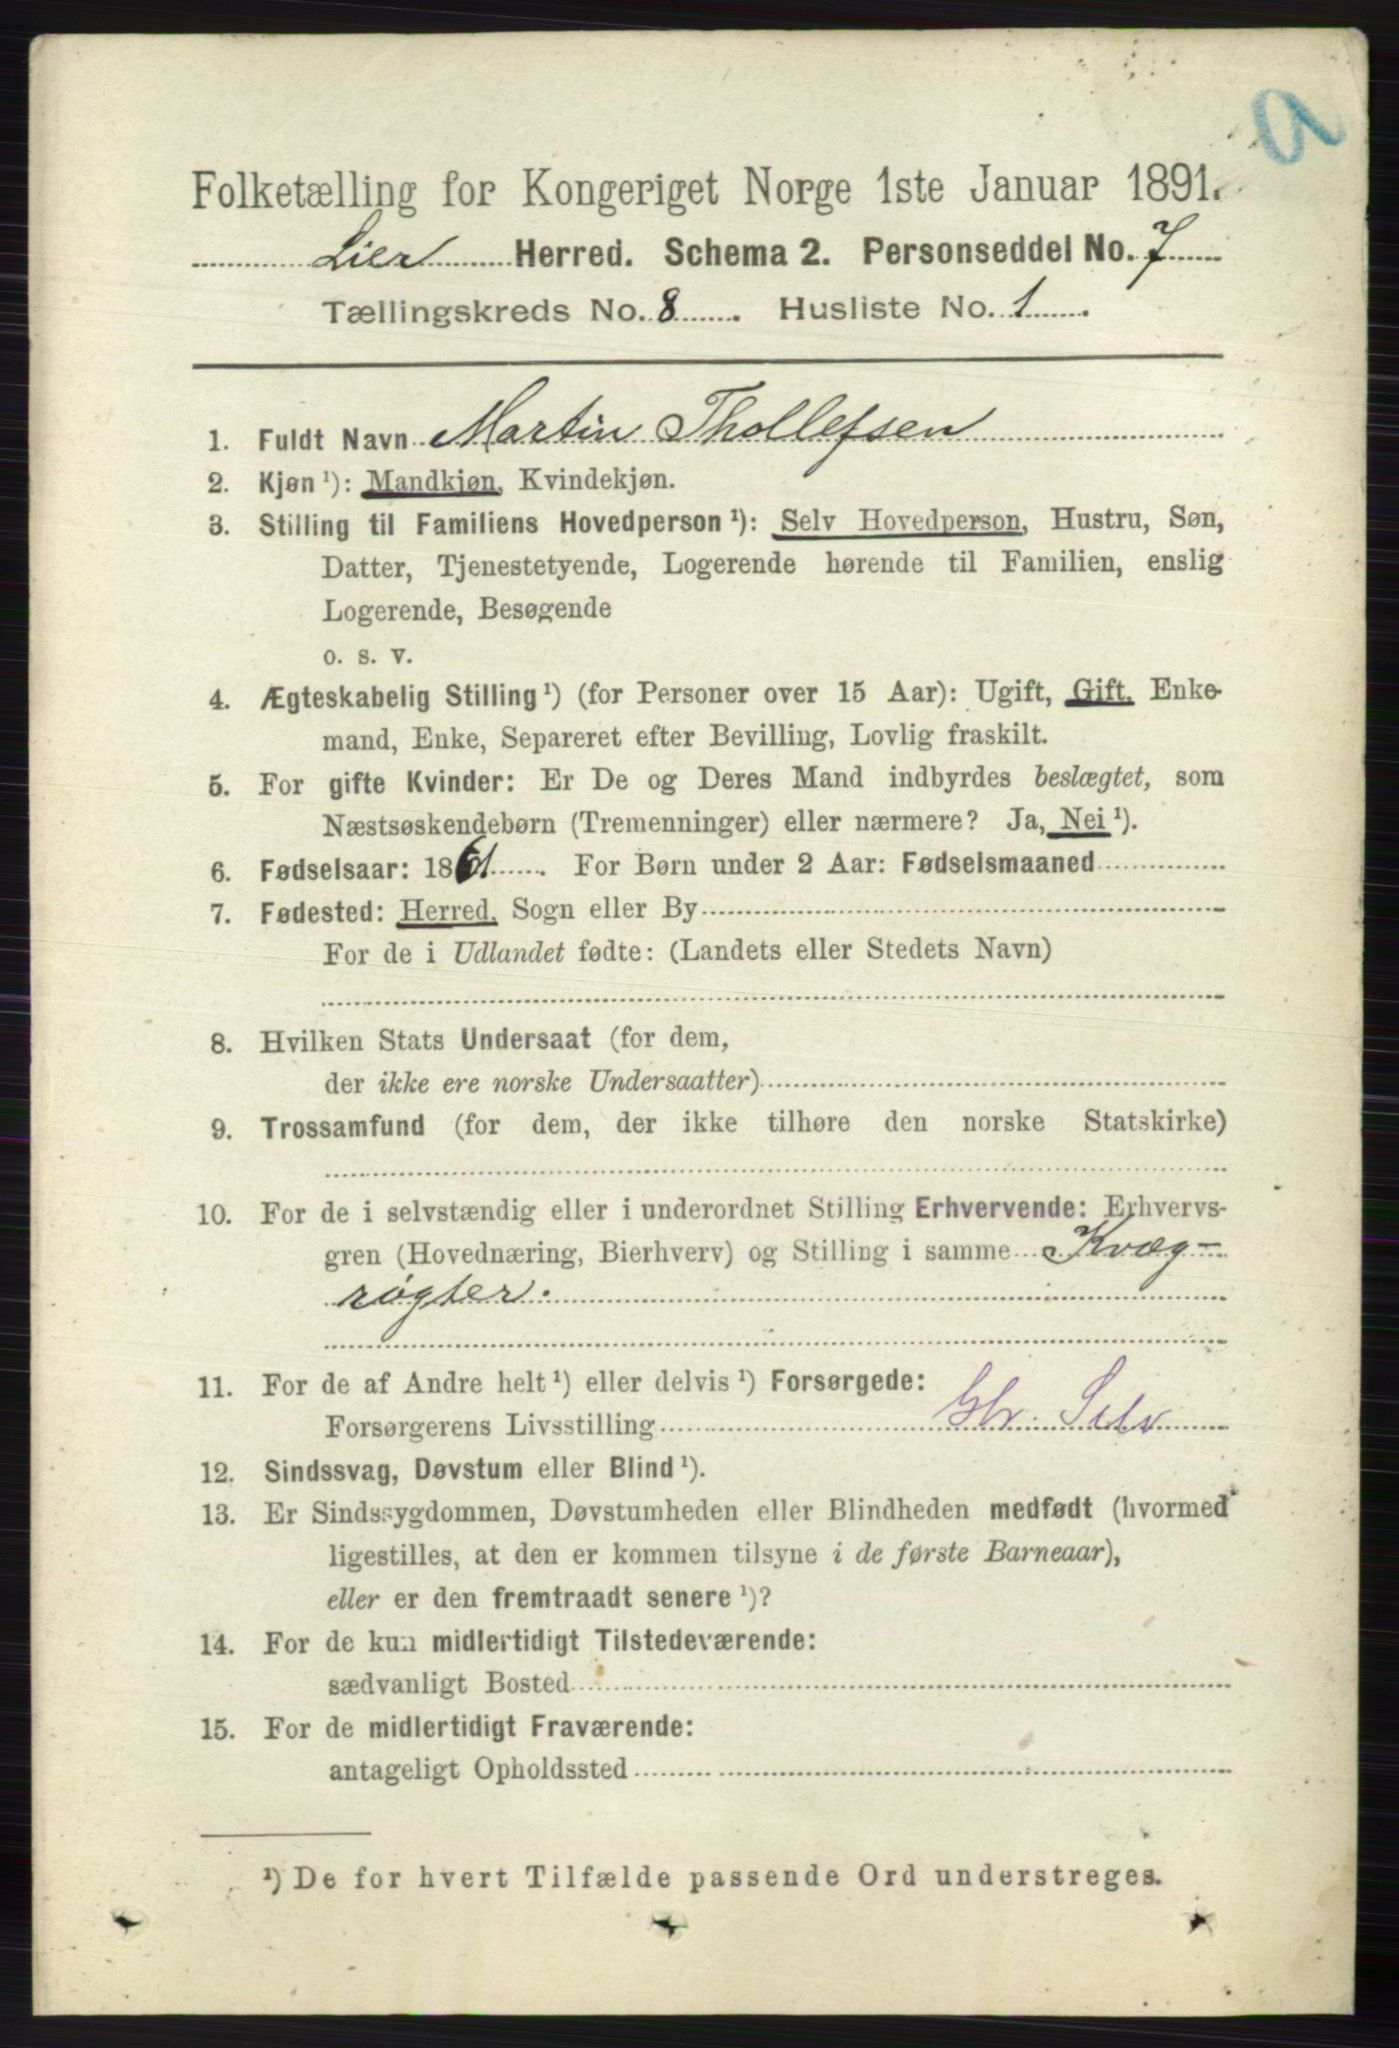 Folketælling for Kongeriget Norge 1ste Januar 1891.
Lier Herred. Schema 2. Personseddel No. 7
Tællingskreds No. 8. Husliste No. 1.
1. Fuldt Navn Martin Thollefsen
2. Kjøn ¹): Mandkjøn, Kvindekjøn.
3. Stilling til Familiens Hovedperson ¹): Selv Hovedperson, Hustru, Søn,
Datter, Tjenestetyende, Logerende hørende til Familien, enslig
Logerende, Besøgende
o. s. v.
4. Ægteskabelig Stilling ¹) (for Personer over 15 Aar): Ugift, Gift, Enke-
mand, Enke, Separeret efter Bevilling, Lovlig fraskilt.
5. For gifte Kvinder: Er De og Deres Mand indbyrdes beslægtet, som
Næstsøskendebørn (Tremenninger) eller nærmere? Ja, Nei ¹).
6. Fødselsaar: 1861. For Børn under 2 Aar: Fødselsmaaned
7. Fødested: Herred, Sogn eller By
For de i Udlandet fødte: (Landets eller Stedets Navn)
8. Hvilken Stats Undersaat (for dem,
der ikke ere norske Undersaatter)
9. Trossamfund (for dem, der ikke tilhøre den norske Statskirke)
10. For de i selvstændig eller i underordnet Stilling Erhvervende: Erhvervs-
gren (Hovednæring, Bierhverv) og Stilling i samme Kvæg-
røgter.
11. For de af Andre helt ¹) eller delvis ¹) Forsørgede:
Forsørgerens Livsstilling Selv
12. Sindssvag, Døvstum eller Blind ¹).
13. Er Sindssygdommen, Døvstumheden eller Blindheden medfødt (hvormed
ligestilles, at den er kommen tilsyne i de første Barneaar),
eller er den fremtraadt senere ¹)?
14. For de kun midlertidigt Tilstedeværende:
sædvanligt Bosted
15. For de midlertidigt Fraværende:
antageligt Opholdssted
¹) De for hvert Tilfælde passende Ord understreges.